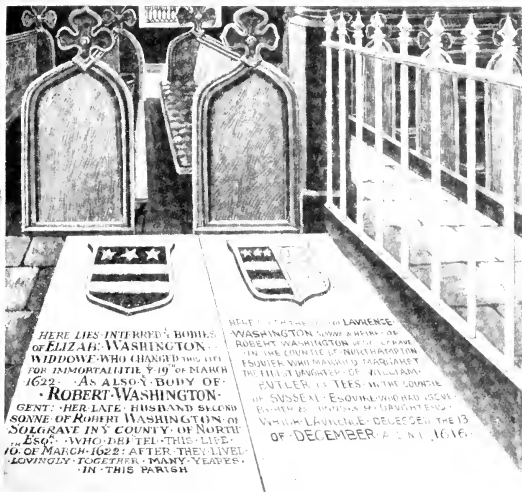 HERE LIES INTERRED Yᵉ BODIES
OF ELIZAB: WASHINGTON
WIDDOWE WHO CHANGED THIS LIFE
FOR IMMORTALITIE Yᵉ 19TH OF MARCH
1622 · AS ALSO Yᵉ BODY OF
· ROBERT · WASHINGTON ·
GENT: HER LATE HUSBAND SECOND
SONNE OF ROBERT WASHINGTON OF
SOLGRAVE IN Yᵉ COUNTY OF NORTH
ESQʳ · WHO DEPTED THIS LIFE
10 OF MARCH 1622: AFTER THEY LIVED
LOVINGLY TOGETHER MANY YEARES
· IN THIS PARISH
HERE LAWRENCE
WASHINGTON SONNE & HEIRE OF
ROBERT WASHINGTON OF
IN THE COUNTIE OF NORTHAMPTON
ESQUIER WHO MARIED MARGARET
DAUGHTER OF WILLIAM
BUTLER OF TEES IN THE COUNTIE
OF SUSSEXE ESQUIRE WHO HAD ISSUE
DAUGHTERS
WHICH LAURENCE DECESSED THE 13
OF DECEMBER 1616